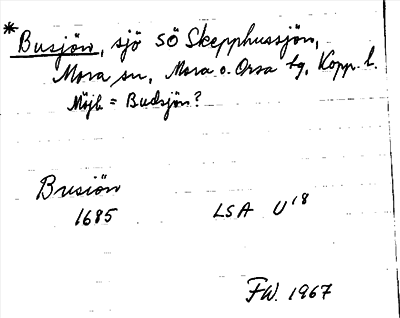 *Busjön, sjö SÖ Skepphussjön,
Mora sn, Mora o. Orsa tg, Kopp. l.
Möjl. = Budsjön?
Busiön
1685 LSA U18
FW. 1967